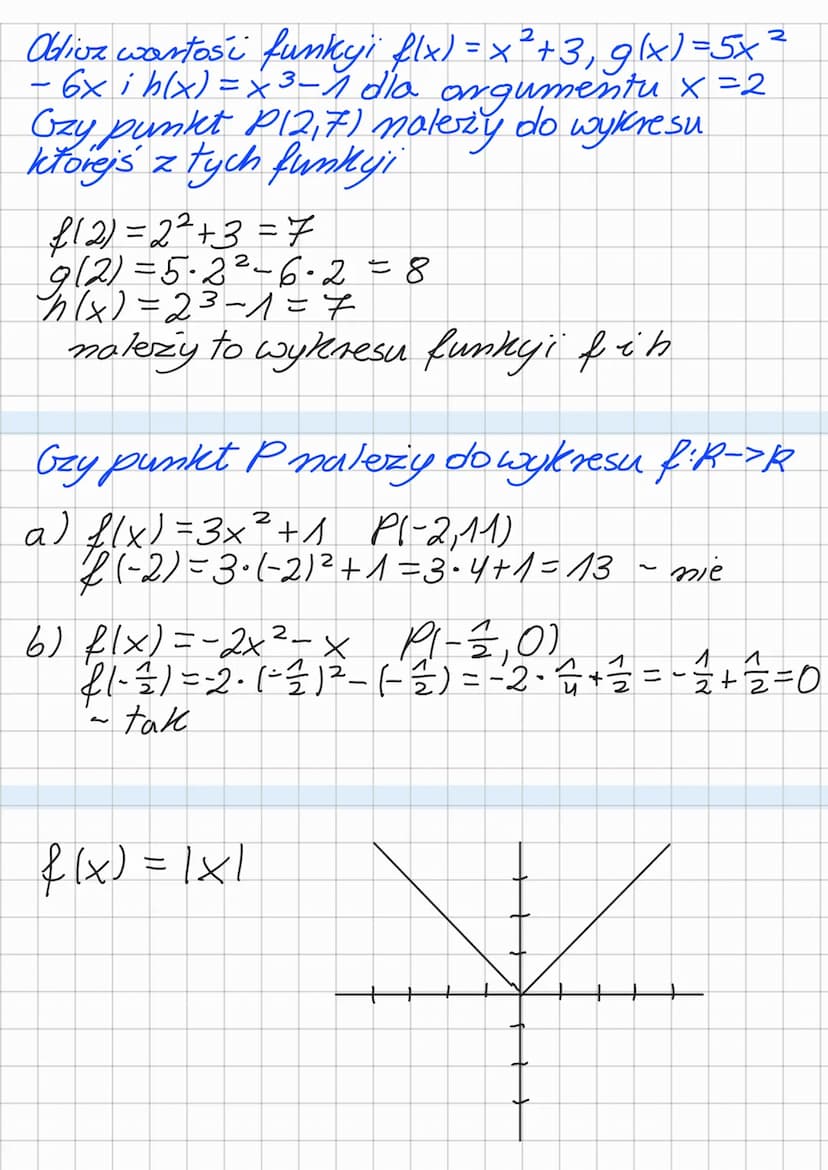 Oblicz wartości funkcji f(x) = x²+3, g(x) = 5x²
- 6x i h(x) = x³-1 dla argumentu x = 2
Czy punkt P(2,7) należy do wykresu
którejś z tych funkcji
f(2) = 2²+3 = 7
g(2) = 5·2²-6·2 = 8
h(x) = 2³-1 = 7
należy to wykresu funkcji f i h
Czy punkt P należy do wykresu f:R->R
a) f(x) = 3x²+1 P(-2,11)
f(-2) = 3·(-2)²+1 = 3·4+1 = 13 ~ nie
b) f(x) = -2x²-x P(-½,0)
f(-½) = -2·(-½)²-(-½) = -2·¼+½ = -½+½=0
~ tak
f(x) = |x|